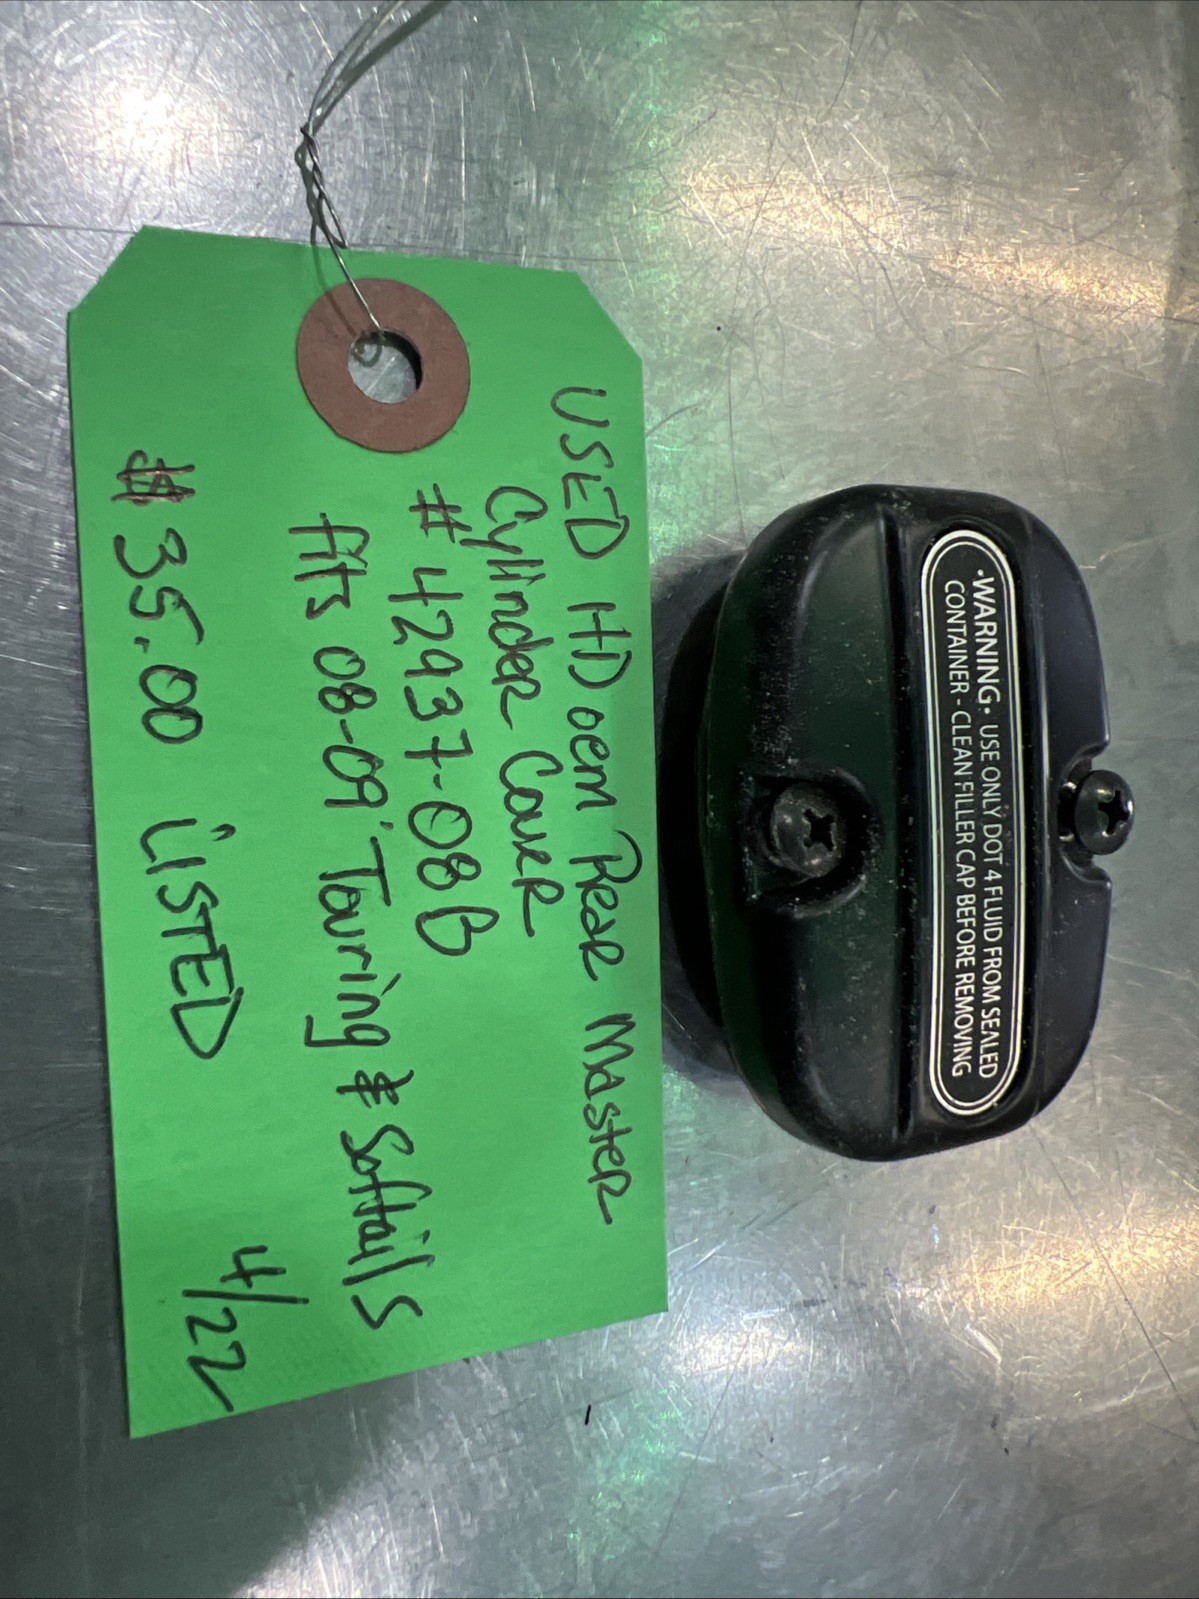 USED HD oem Rear Master
Cylinder Cover
# 42937-08B
fits 08-09' Touring & Softails
$35.00 LISTED
4/22
•WARNING• USE ONLY DOT 4 FLUID FROM SEALED
CONTAINER - CLEAN FILLER CAP BEFORE REMOVING